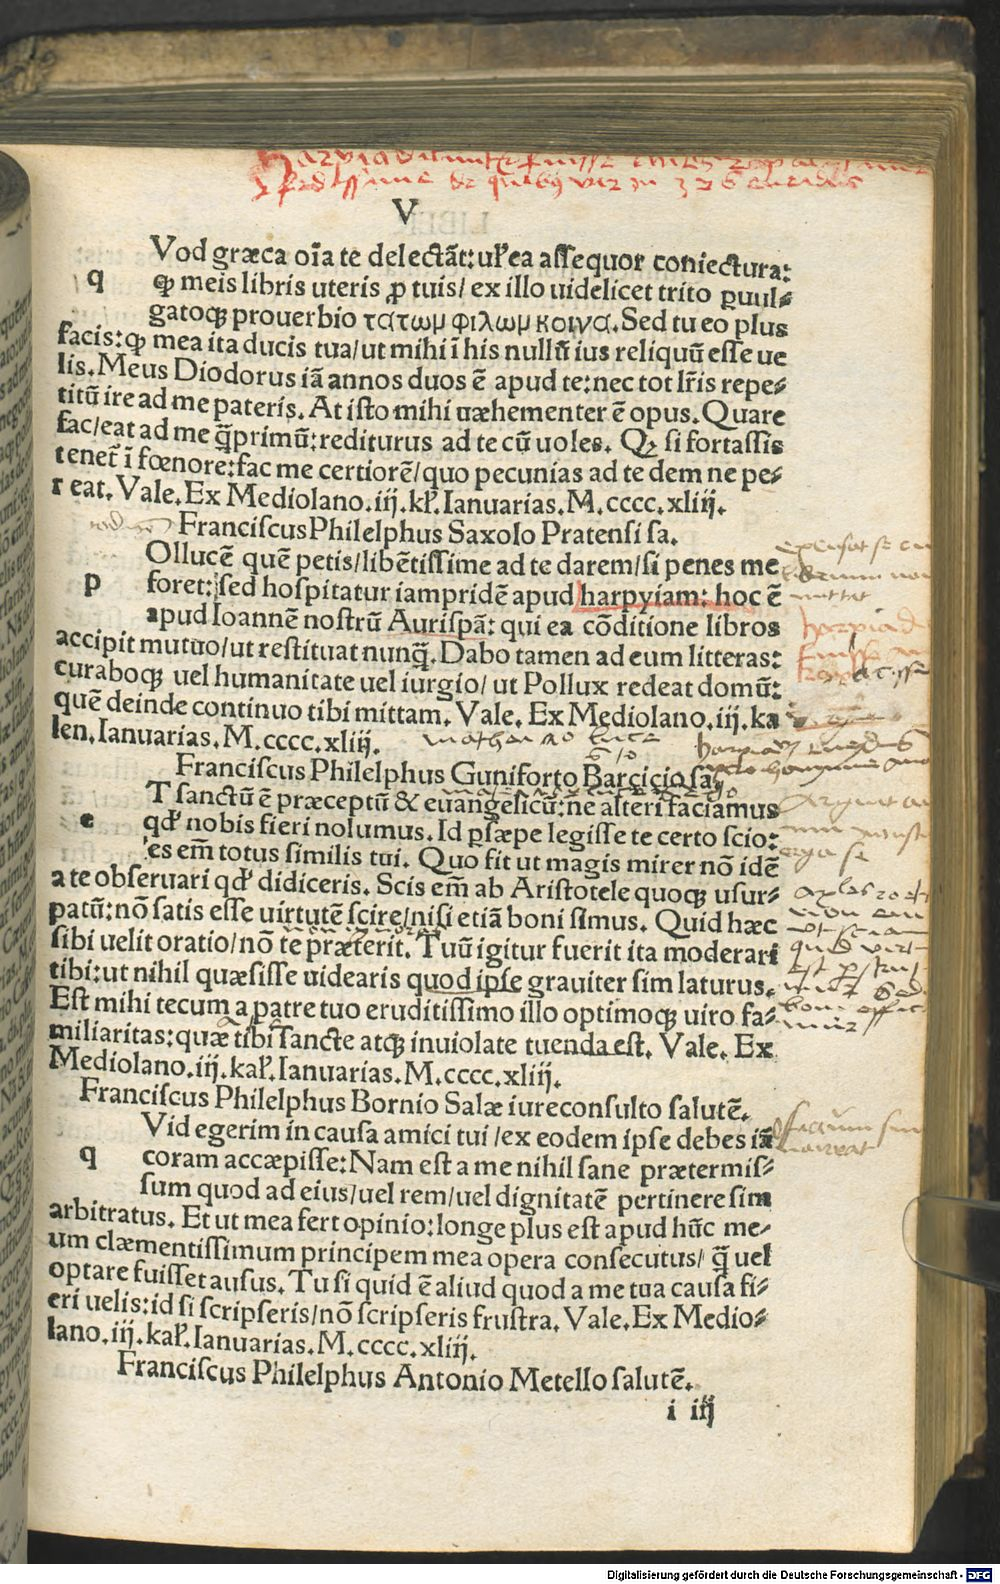 V
Vod græca oīa te delectāt: uꝉ ea assequor coniectura:
q ꝙ meis libris uteris ꝓ tuis/ ex illo uidelicet trito ꝑuul⸗
gatoqꝫ prouerbio τατωμ φιλωμ κοινα. Sed tu eo plus
facis: ꝙ mea ita ducis tua/ut mihi ī his nullū ius reliquū esse ue
lis. Meus Diodorus iā annos duos ē apud te: nec tot lr̄is repe⸗
titū ire ad me pateris. At isto mihi uæhementer ē opus. Quare
fac/eat ad me q̄primū: rediturus ad te cū uoles. Qꝫ si fortassis
tenet̄ ī fœnore: fac me certiorē/quo pecunias ad te dem ne pe⸗
reat. Vale. Ex Mediolano. iij. kꝉ. Ianuarias. M. cccc. xliij.
Franciscus Philelphus Saxolo Pratensi sa.
Ollucē quē petis/libētissime ad te darem/si penes me
p foret: sed hospitatur iampridē apud harpyiam: hoc ē
apud Ioannē nostrū Aurispā: qui ea cōditione libros
accipit mutuo/ut restituat nunq̄. Dabo tamen ad eum litteras:
curaboqꝫ uel humanitate uel iurgio/ ut Pollux redeat domū:
quē deinde continuo tibi mittam. Vale. Ex Mediolano. iij. ka
len. Ianuarias. M. cccc. xliij.
Franciscus Philelphus Guniforto Barcicio sa.
T sanctū ē præceptū & euangelicū: ne alteri faciamus
e qđ nobis fieri nolumus. Id p̄sæpe legisse te certo scio:
es em̄ totus similis tui. Quo fit ut magis mirer nō idē
a te obseruari qđ didiceris. Scis em̄ ab Aristotele quoqꝫ usur⸗
patū: nō satis esse uirtutē scire/nisi etiā boni simus. Quid hæc
sibi uelit oratio/nō te præterit. Tuū igitur fuerit ita moderari
tibi: ut nihil quæsisse uidearis quod ipse grauiter sim laturus.
Est mihi tecum a patre tuo eruditissimo illo optimoqꝫ uiro fa⸗
miliaritas: quæ tibi sancte atqꝫ inuiolate tuenda est. Vale. Ex
Mediolano. iij. kaꝉ. Ianuarias. M. cccc. xliij.
Franciscus Philelphus Bornio Salæ iureconsulto salutē.
Vid egerim in causa amici tui /ex eodem ipse debes iā
q coram accæpisse: Nam est a me nihil sane prætermis⸗
sum quod ad eius/uel rem/uel dignitatē pertinere sim
arbitratus. Et ut mea fert opinio: longe plus est apud hūc me⸗
um clæmentissimum principem mea opera consecutus/ q̄ uel
optare fuisset ausus. Tu si quid ē aliud quod a me tua causa fi⸗
eri uelis: id si scripseris/nō scripseris frustra. Vale. Ex Medio⸗
lano. iij. kaꝉ. Ianuarias. M. cccc. xliij.
Franciscus Philelphus Antonio Metello salutē.
i iij
Digitalisierung gefördert durch die Deutsche Forschungsgemeinschaft - DFG